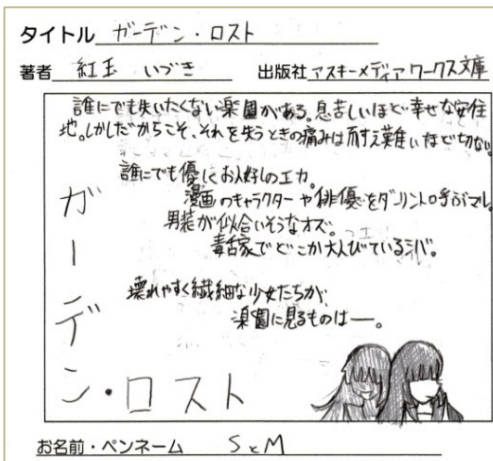 タイトル ガーデン・ロスト
著者 紅玉 いづき 出版社 アスキーメディアワークス文庫
誰にでも失いたくない楽園がある。息苦しいほど幸せな安住
地。しかしだからこそ、それを失うときの痛みは耐え難いほど切ない。
誰にでも優しくお人好しのエカ。
漫画のキャラクターや俳優をダーリンと呼ぶマル。
男装が似合いそうなオズ。
毒舌家でどこか大人びているシバ。
壊れやすく繊細な少女たちが、
楽園に見るものは―。
ガーデン・ロスト
お名前・ペンネーム SとM